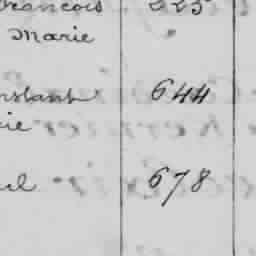 francois 225
Marie
nstant 644
ie
el 678